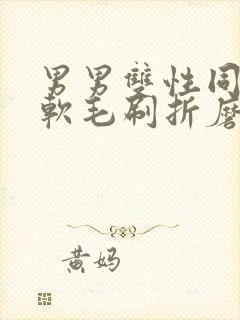 男男雙性同
軟毛刷折磨
黄妈